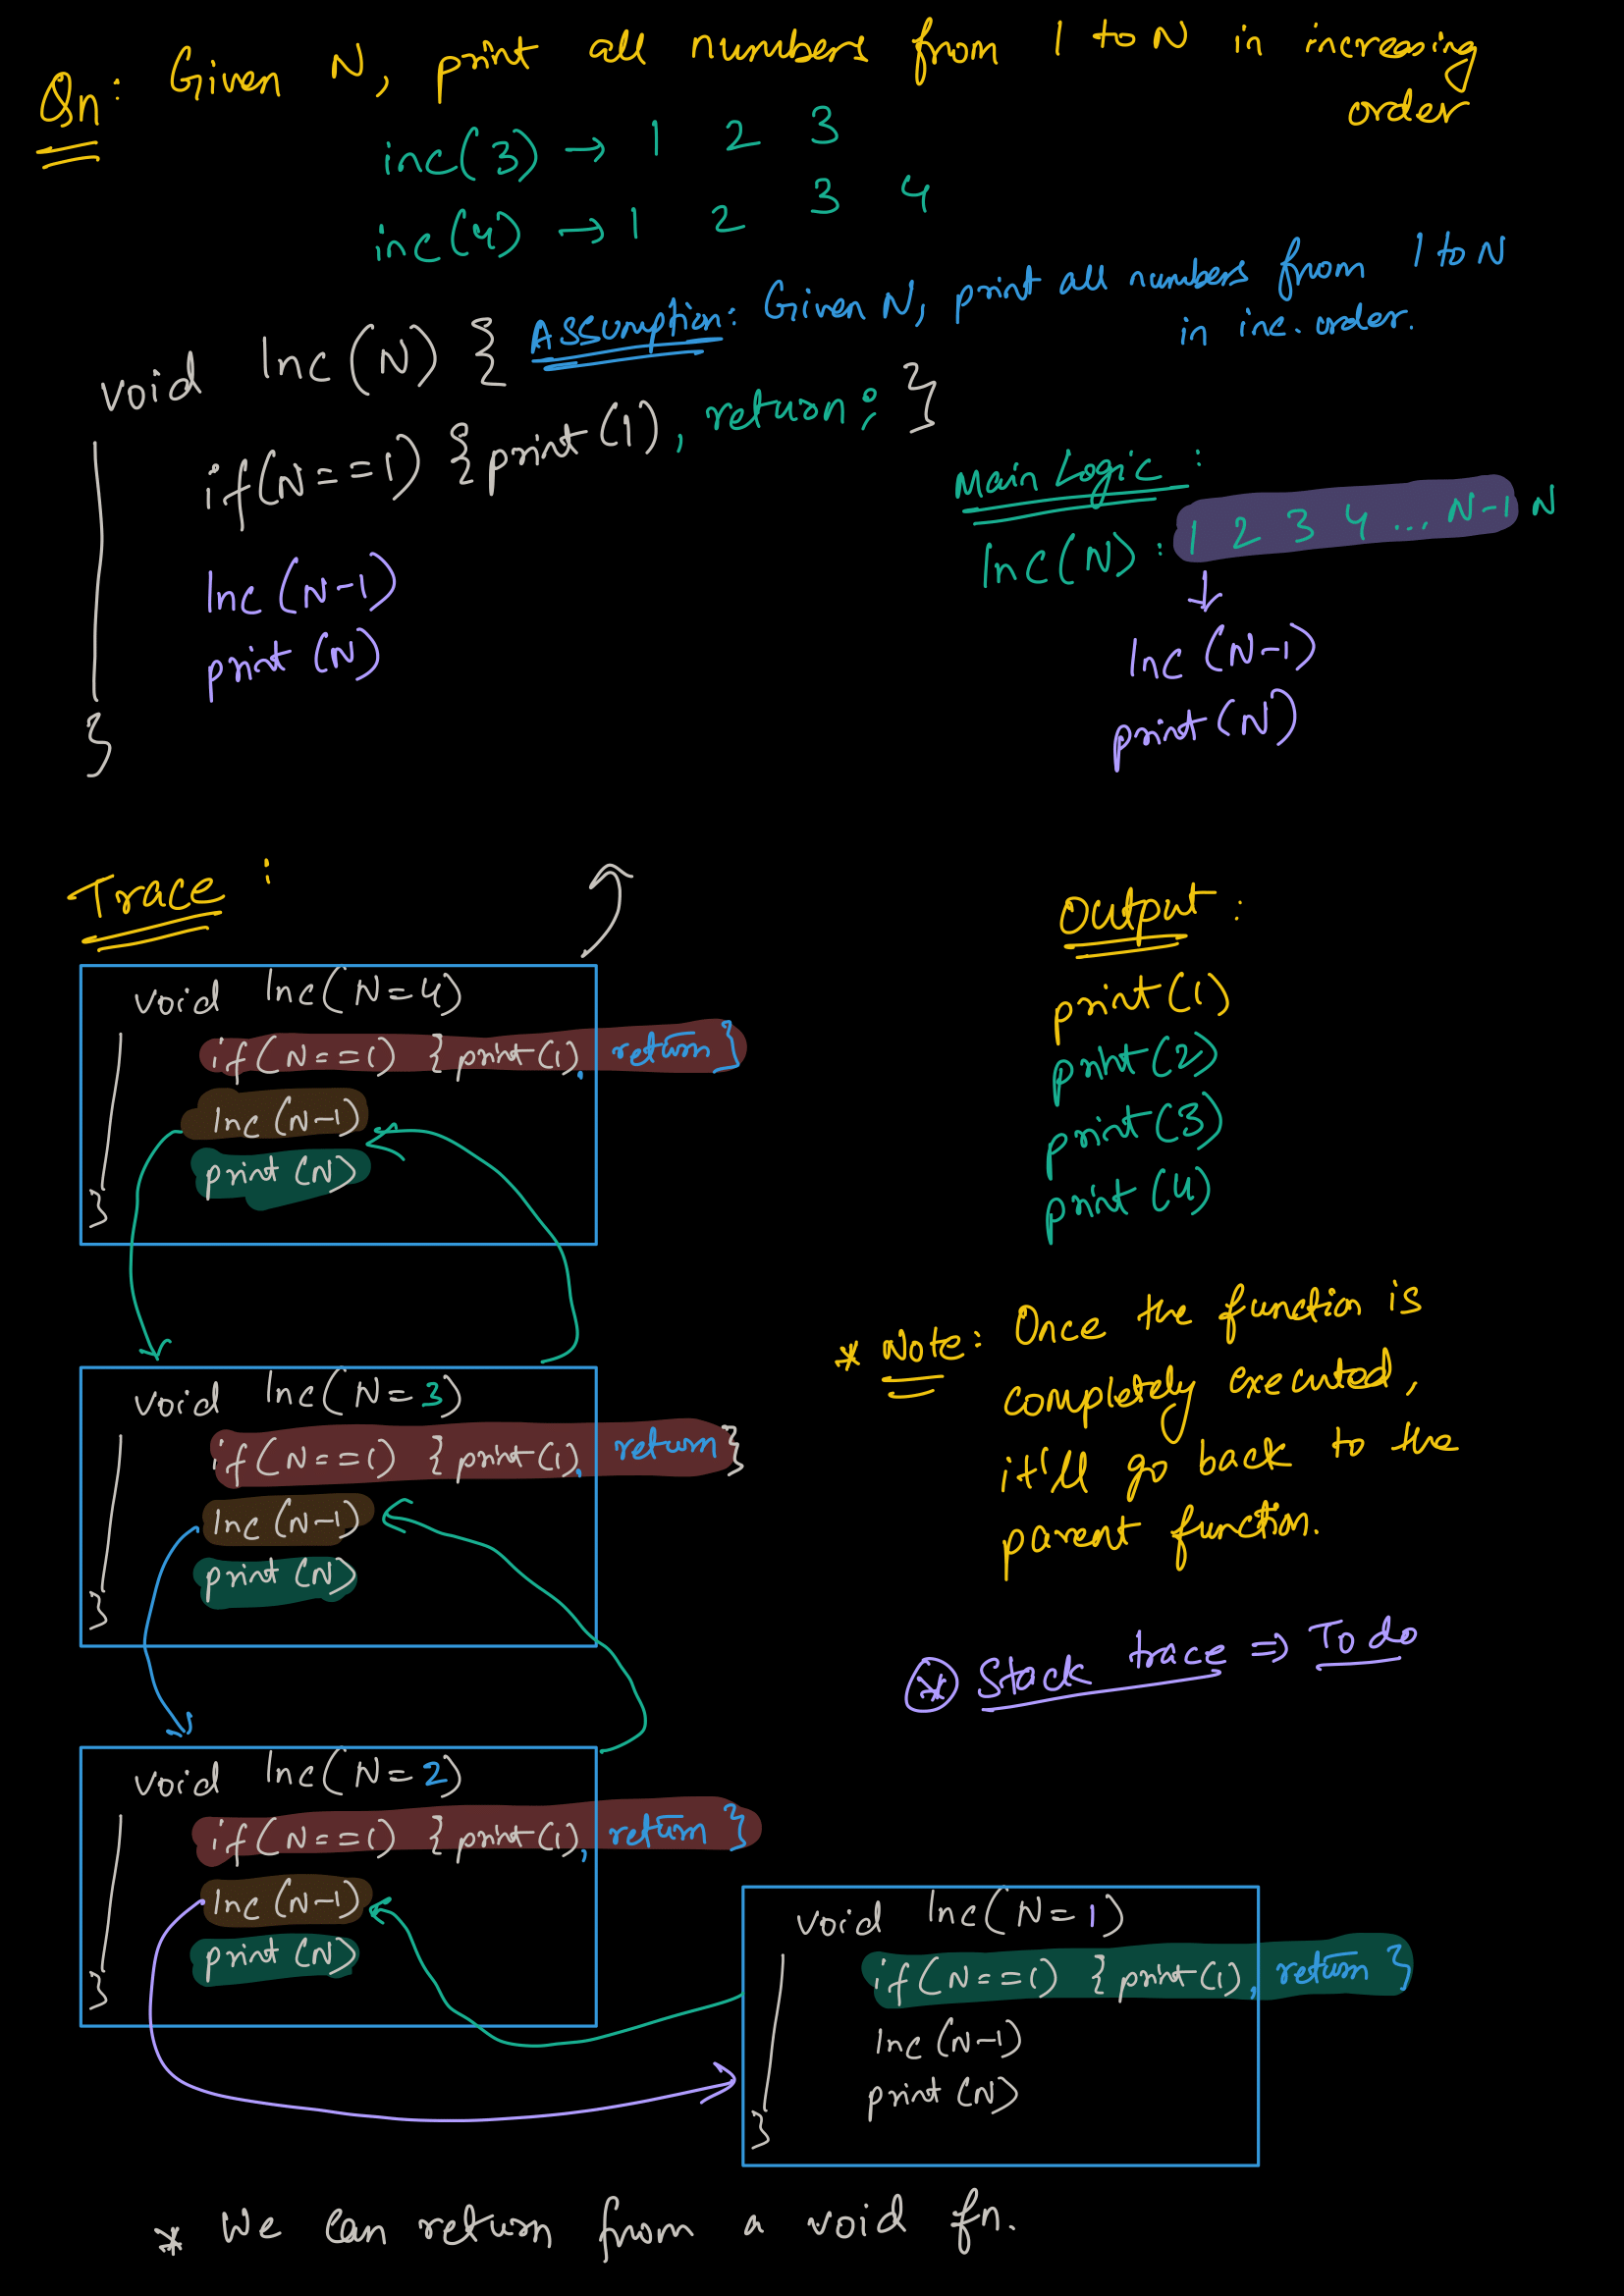 Qn: Given N, print all numbers from 1 to N in increasing
order
inc(3) → 1 2 3
inc(4) → 1 2 3 4
void Inc(N) { Assumption: Given N, print all numbers from 1 to N
in inc. order.
if(N==1) {print(1), return; }
Inc(N-1)
print(N)
}
Main Logic:
Inc(N): 1 2 3 4 ... N-1 N
↓
Inc(N-1)
print(N)
Trace:
void Inc(N=4)
if(N==1) {print(1), return }
Inc(N-1)
print(N)
}
void Inc(N=3)
if(N==1) {print(1), return }
Inc(N-1)
print(N)
}
void Inc(N=2)
if(N==1) {print(1), return }
Inc(N-1)
print(N)
}
void Inc(N=1)
if(N==1) {print(1), return }
Inc(N-1)
print(N)
}
Output:
print(1)
print(2)
print(3)
print(4)
* Note: Once the function is
completely executed,
it'll go back to the
parent function.
* Stack trace ⇒ To do
* We can return from a void fn.